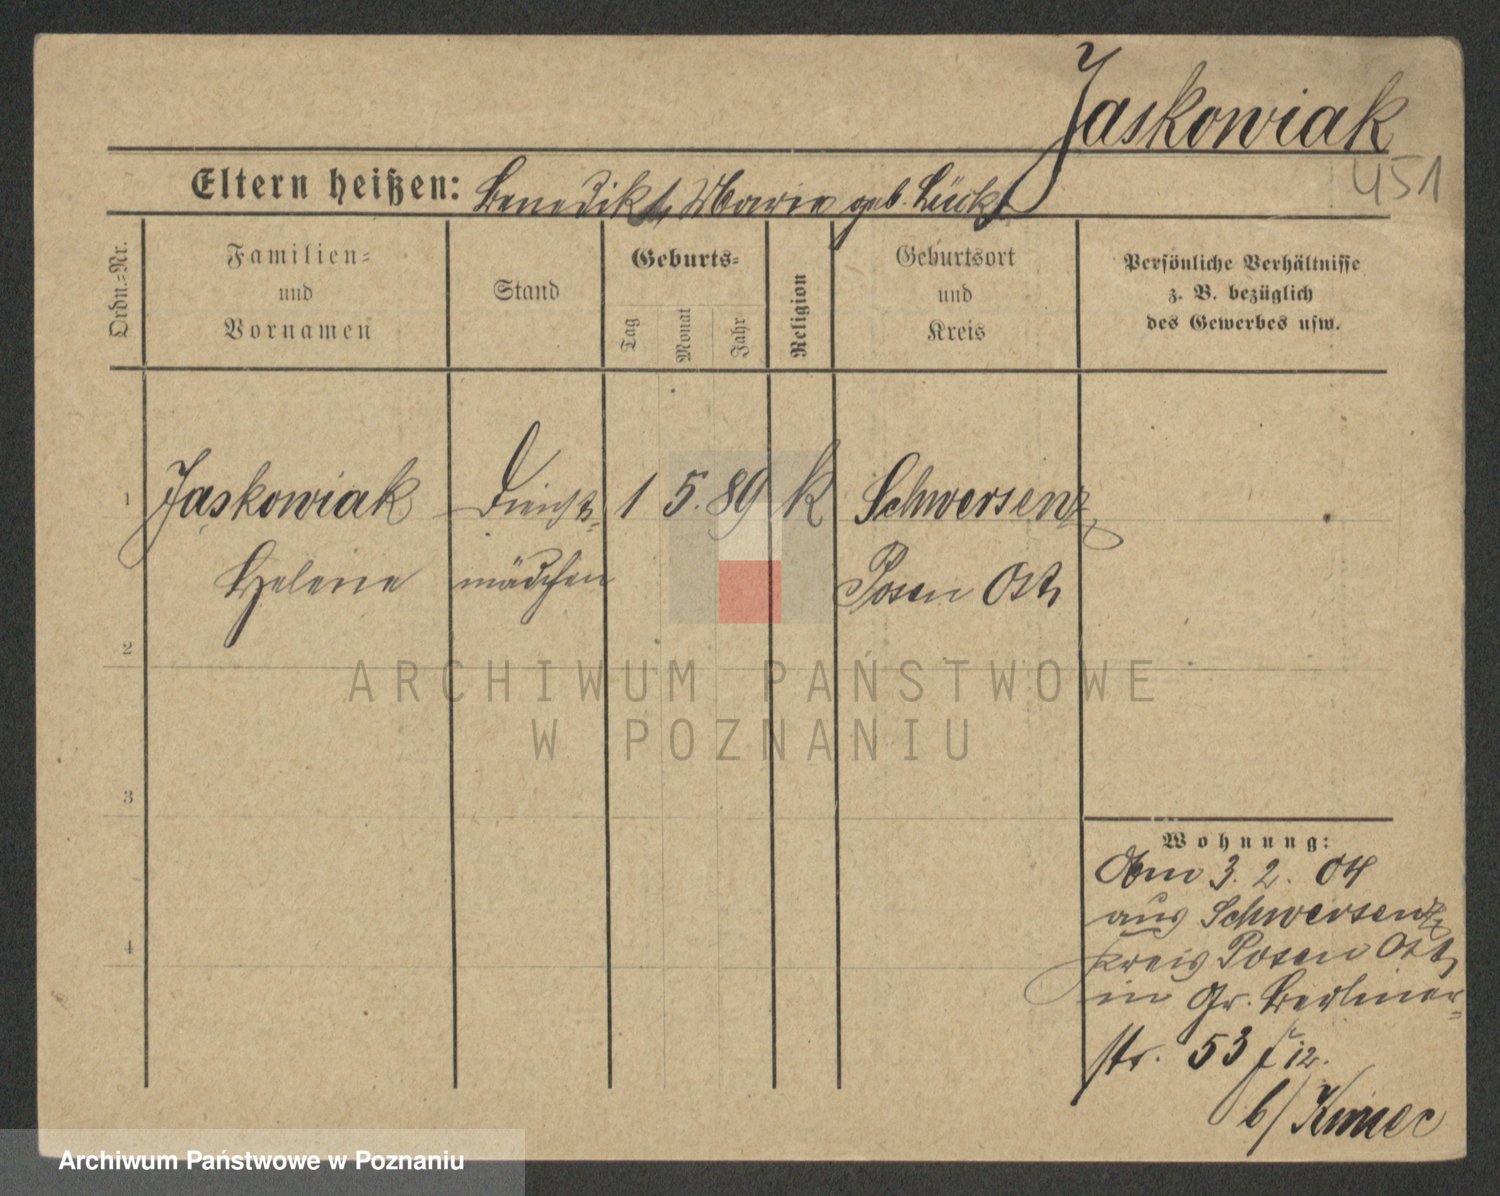 Jaskowiak
451
Eltern heißen: Benedikt, Marie geb. Lück
Ordn.=Nr.
Familien=
und
Vornamen
Stand
Geburts=
Tag
Monat
Jahr
Religion
Geburtsort
und
Kreis
Persönliche Verhältnisse
z. B. bezüglich
des Gewerbes usw.
1 Jaskowiak Dienst= 1 5. 89 k Schwersenz
Helene mädchen Posen Ost,
2
ARCHIWUM PAŃSTWOWE
W POZNANIU
3
Wohnung:
3. 2. 04
aus Schwersenz
Kreis Posen Ost,
4
in Gr. Berliner=
str. 53 12.
b/
Archiwum Państwowe w Poznaniu